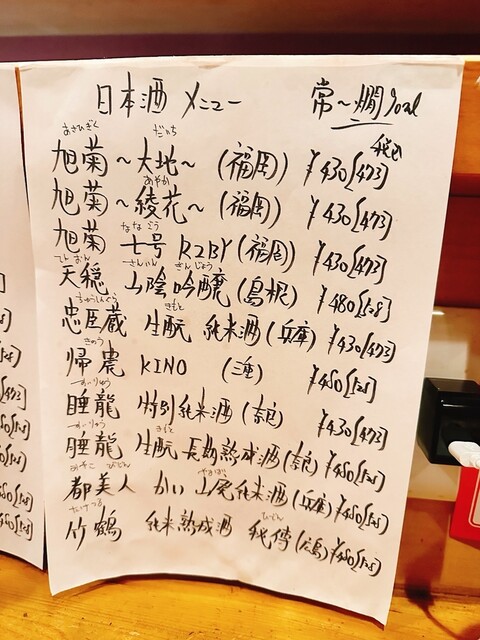 日本酒 メニュー 常～燗 90ml
税込
あさひぎく だいち
旭菊～大地～(福岡) ¥430[473]
あやか
旭菊～綾花～(福岡) ¥430[473]
ななごう
旭菊 七号 R2BY(福岡) ¥430[473]
てんおん さんいん ぎんじょう
天穏 山陰吟醸(島根) ¥480[528]
ちゅうしんぐら きもと
忠臣蔵 生酛 純米酒(兵庫) ¥430[473]
きのう
帰農 KINO (三重) ¥480[528]
すいりゅう
睡龍 特別純米酒(奈良) ¥430[473]
すいりゅう きもと
睡龍 生酛 長期熟成酒(奈良) ¥480[528]
みやこ びじん やまはい
都美人 山廃純米酒(兵庫) ¥480[528]
たけつる ひでん
竹鶴 純米熟成酒 秘傳(広島) ¥480[528]